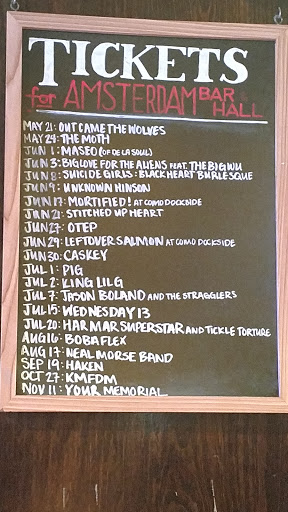 TICKETS
for AMSTERDAM BAR HALL
MAY 21: OUT CAME THE WOLVES
MAY 24: THE MOTH
JUN 1: MASEO (OF DE LA SOUL)
JUN 3: BIG LOVE FOR THE ALIENS FEAT. THE BIG WU
JUN 8: SUICIDE GIRLS: BLACKHEART BURLESQUE
JUN 9: UNKNOWN HINSON
JUN 17: MORTIFIED! AT COMO DOCKSIDE
JUN 21: STITCHED UP HEART
JUN 27: OTEP
JUN 29: LEFTOVER SALMON AT COMO DOCKSIDE
JUN 30: CASKEY
JUL 1: PIG
JUL 2: KING LIL G
JUL 7: JASON BOLAND AND THE STRAGGLERS
JUL 15: WEDNESDAY 13
JUL 20: HAR MAR SUPERSTAR AND TICKLE TORTURE
AUG 16: BOBAFLEX
AUG 17: NEAL MORSE BAND
SEP 19: HAKEN
OCT 27: KMFDM
NOV 11: YOUR MEMORIAL